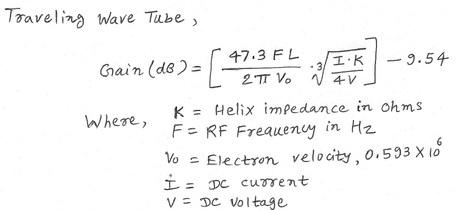 Traveling Wave Tube,
Gain (dB) = [ 47.3 FL / 2π Vo · ³√(I·K / 4V) ] - 9.54
Where, K = Helix impedance in ohms
F = RF Frequency in Hz
Vo = Electron velocity, 0.593 X 10⁶
I = DC current
V = DC Voltage